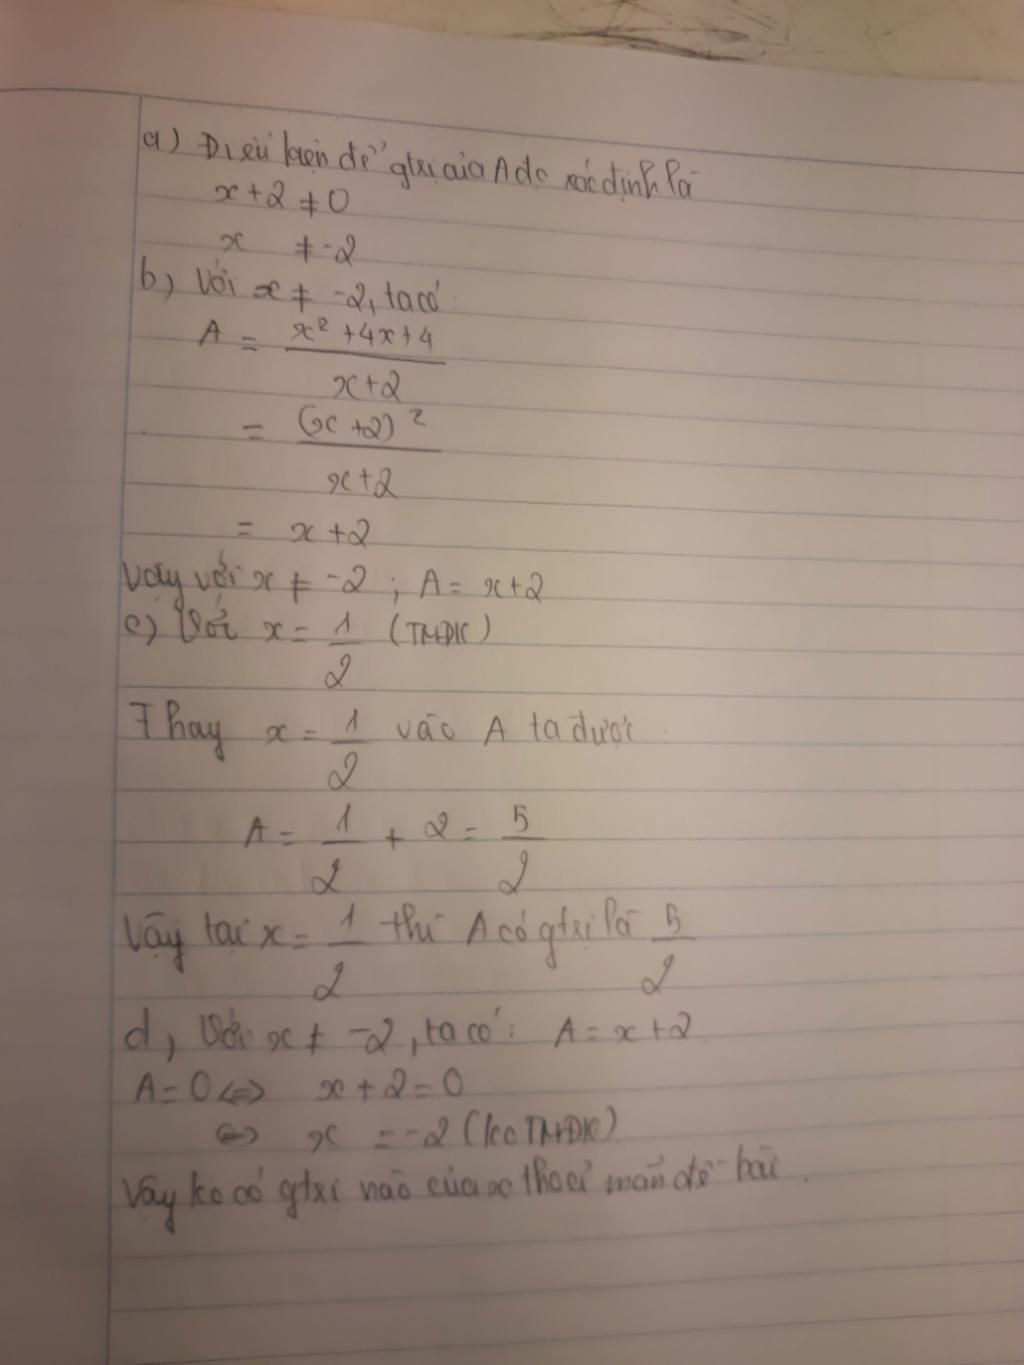 a) Điều kiện để gtrị của A đc xác định là
x + 2 ≠ 0
x ≠ -2
b, Với x ≠ -2, ta có:
A = \frac{x² + 4x + 4}{x + 2}
= \frac{(x + 2)²}{x + 2}
= x + 2
Vậy với x ≠ -2 ; A = x + 2
c) Với x = \frac{1}{2} (TMĐK)
Thay x = \frac{1}{2} vào A ta được
A = \frac{1}{2} + 2 = \frac{5}{2}
Vậy tại x = \frac{1}{2} thì A có gtrị là \frac{5}{2}
d, Với x ≠ -2, ta có: A = x + 2
A = 0 <=> x + 2 = 0
<=> x = -2 (ko TMĐK)
Vậy ko có gtrị nào của x thoả mãn đề bài.